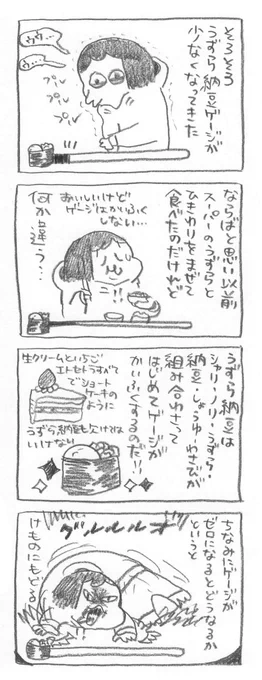 そろそろ
うずら納豆ゲージが
少なくなってきた
ウゥ…
ウゥ…
プル
プル
プル
ならばと思い以前
スーパーのうずらと
ひきわりをまぜて
食べたのだけれど
おいしいけど
ゲージはかいふく
しない…
何か違う…
うずら納豆は
シャリ・ノリ・うずら・
納豆・しょうゆ・わさびが
組み合わさって
はじめてゲージが
かいふくするのだ!!
生クリームといちご
エトセトラすべて
でショート
ケーキの
ように
うずら納豆も欠けては
いけない
ちなみにゲージが
ゼロになるとどうなるか
というと
グルルルオ
けものにもどる